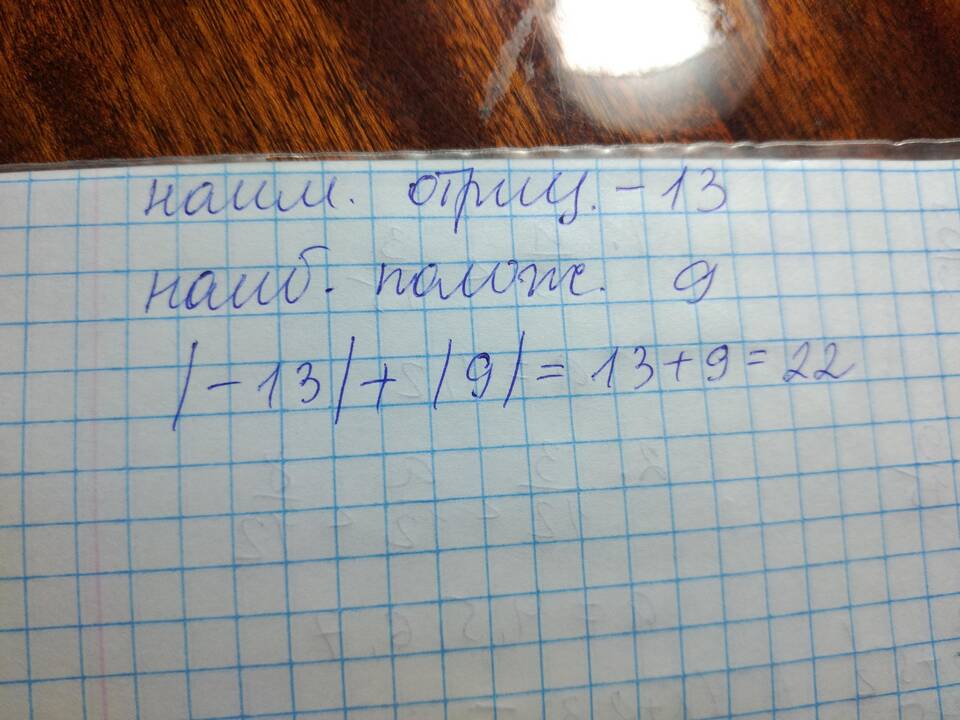 наим. отриц. -13
наиб. полож. 9
|-13|+|9|=13+9=22